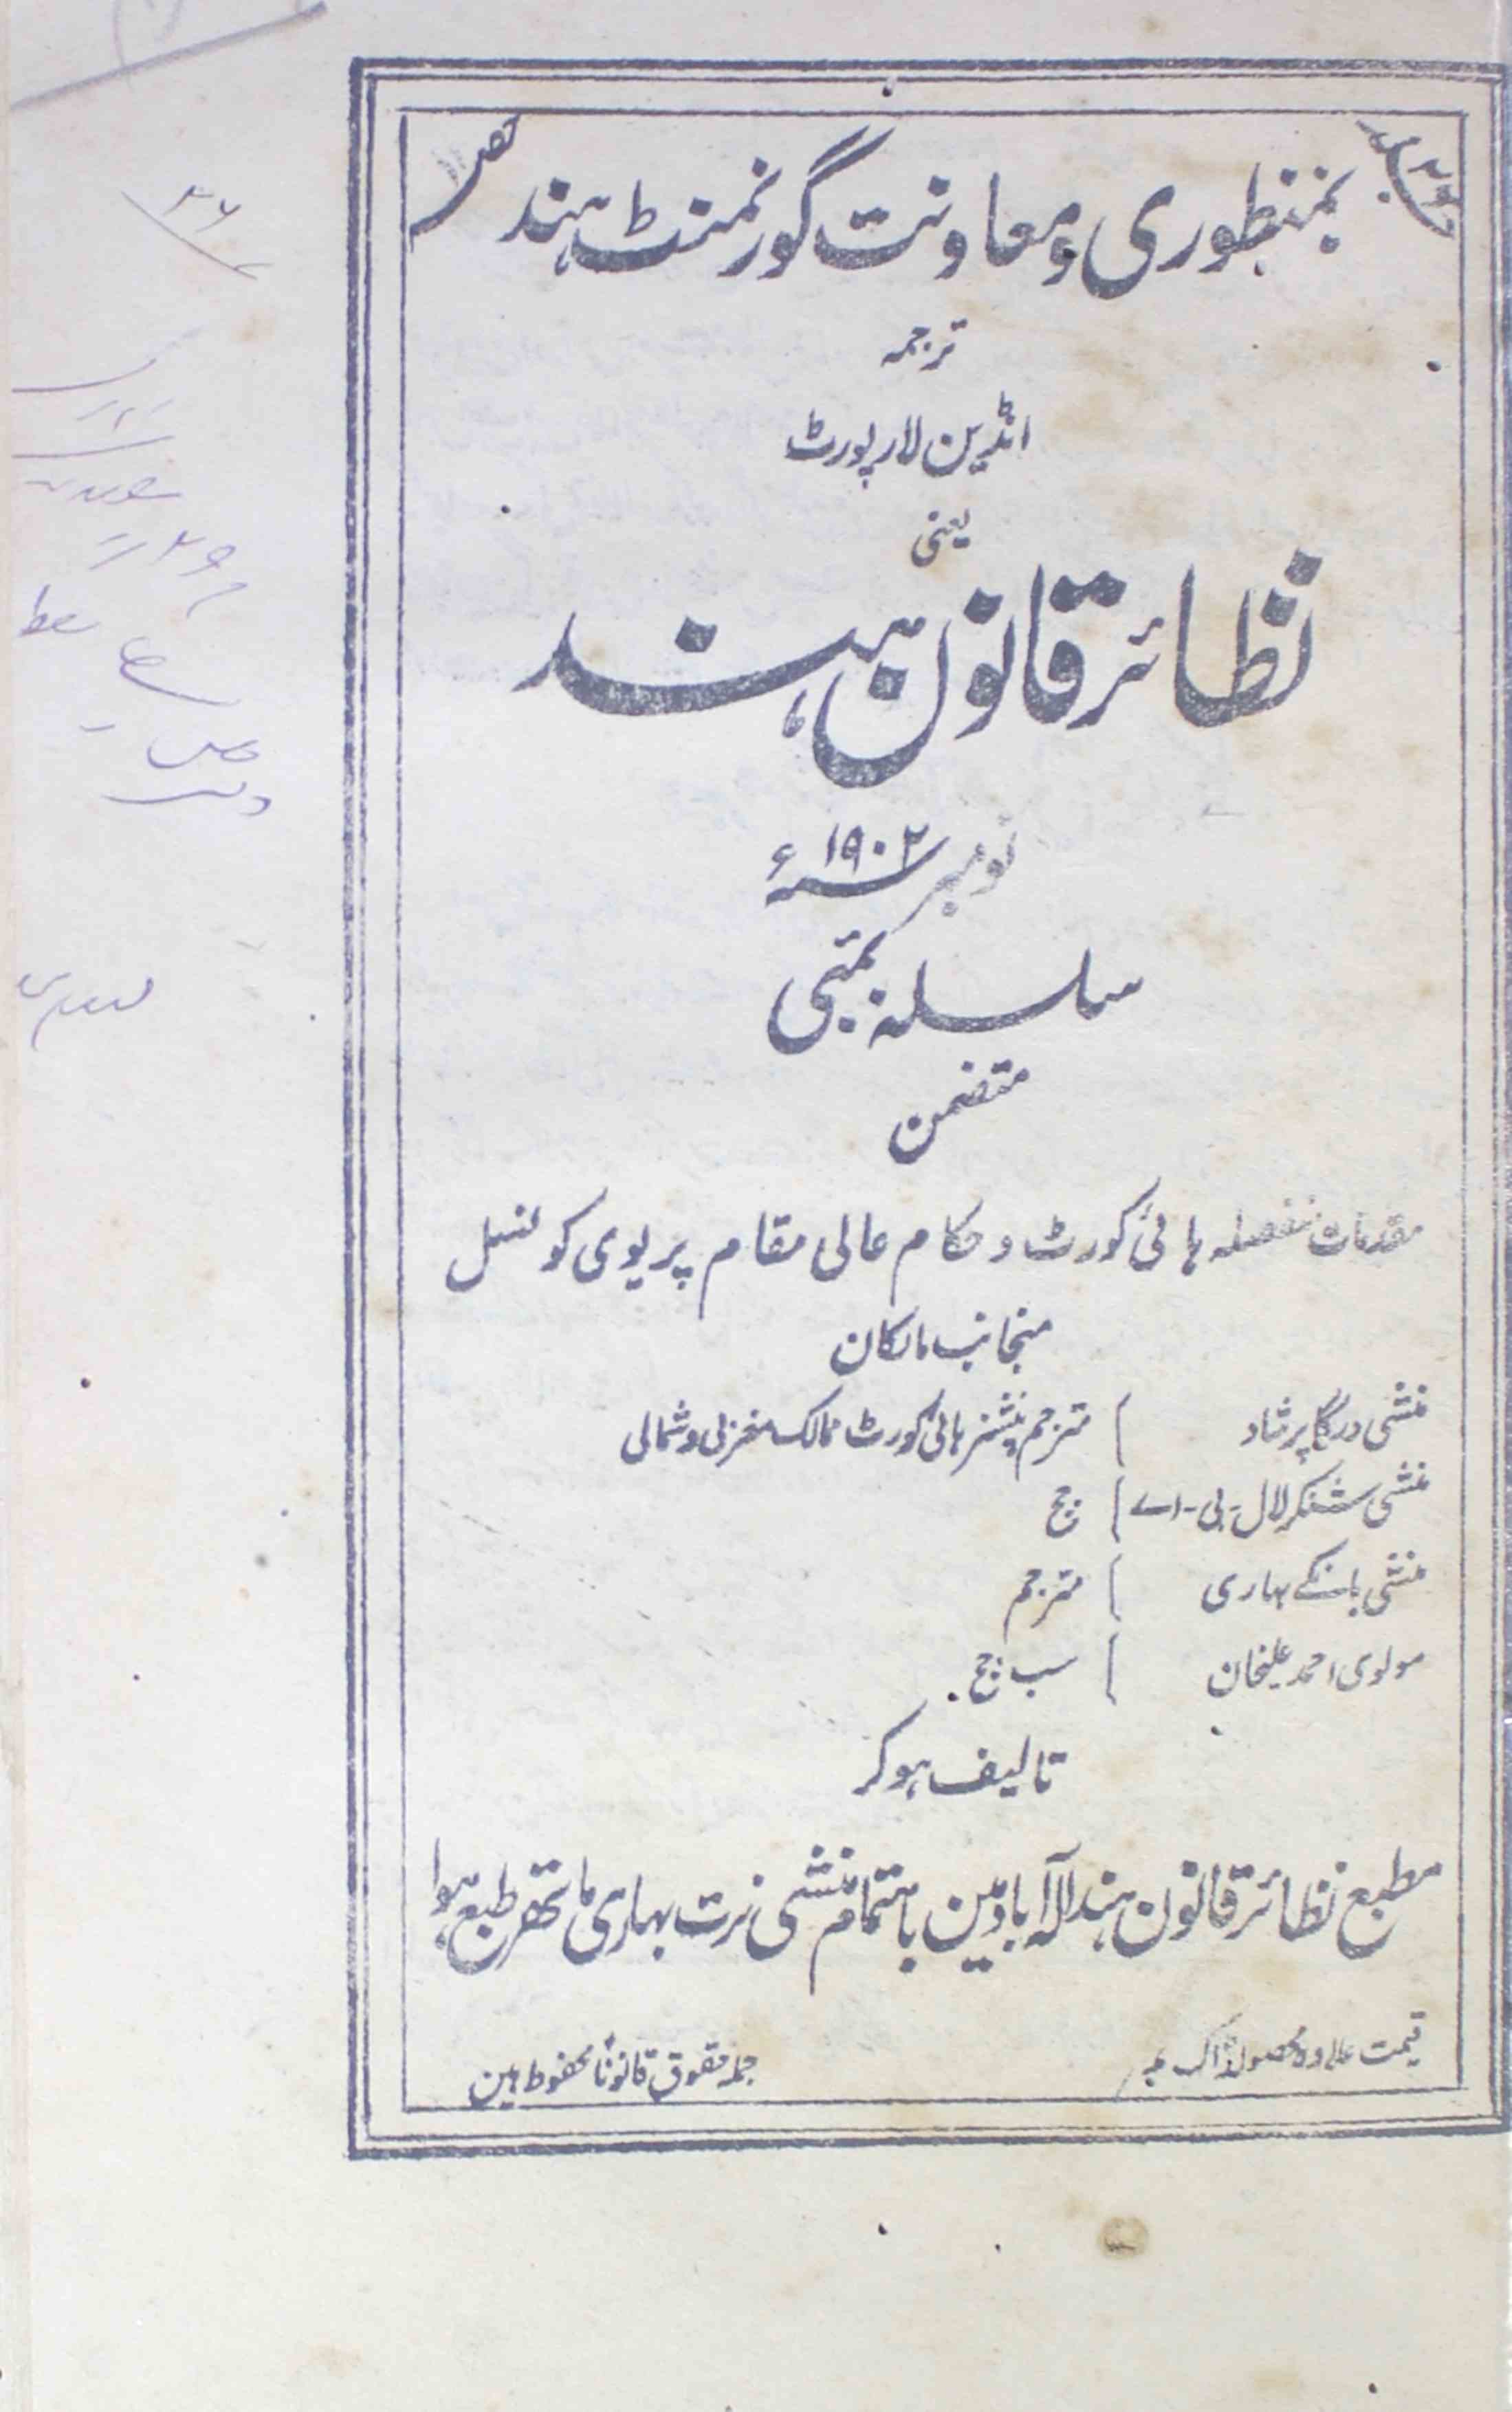 بمنظوری و معاونت گورنمنٹ ہند
ترجمہ
انڈین لا رپورٹ
یعنی
نظائر قانون ہند
نومبر ۱۹۰۲ء
سلسلہ بمبئی
متضمن
مقدمات منفصلہ ہائی کورٹ و حکام عالی مقام پریوی کونسل
منجانب مالکان
منشی درگا پرشاد | مترجم پنشنر ہائی کورٹ ممالک مغربی و شمالی
منشی شنکر لال - بی - اے | جج
منشی بانکے بہاری | مترجم
مولوی احمد علیخان | سب جج
تالیف ہوکر
مطبع نظائر قانون ہند الہ آباد مین باہتمام منشی نرت بہاری ماتھر طبع ہوا
قیمت علاوہ محصول ڈاک
جملہ حقوق قانوناً محفوظ ہین